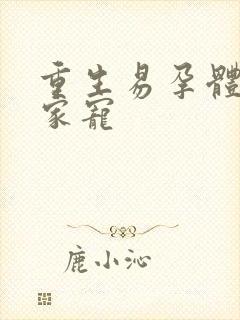 重生易孕體
家寵
鹿小沁